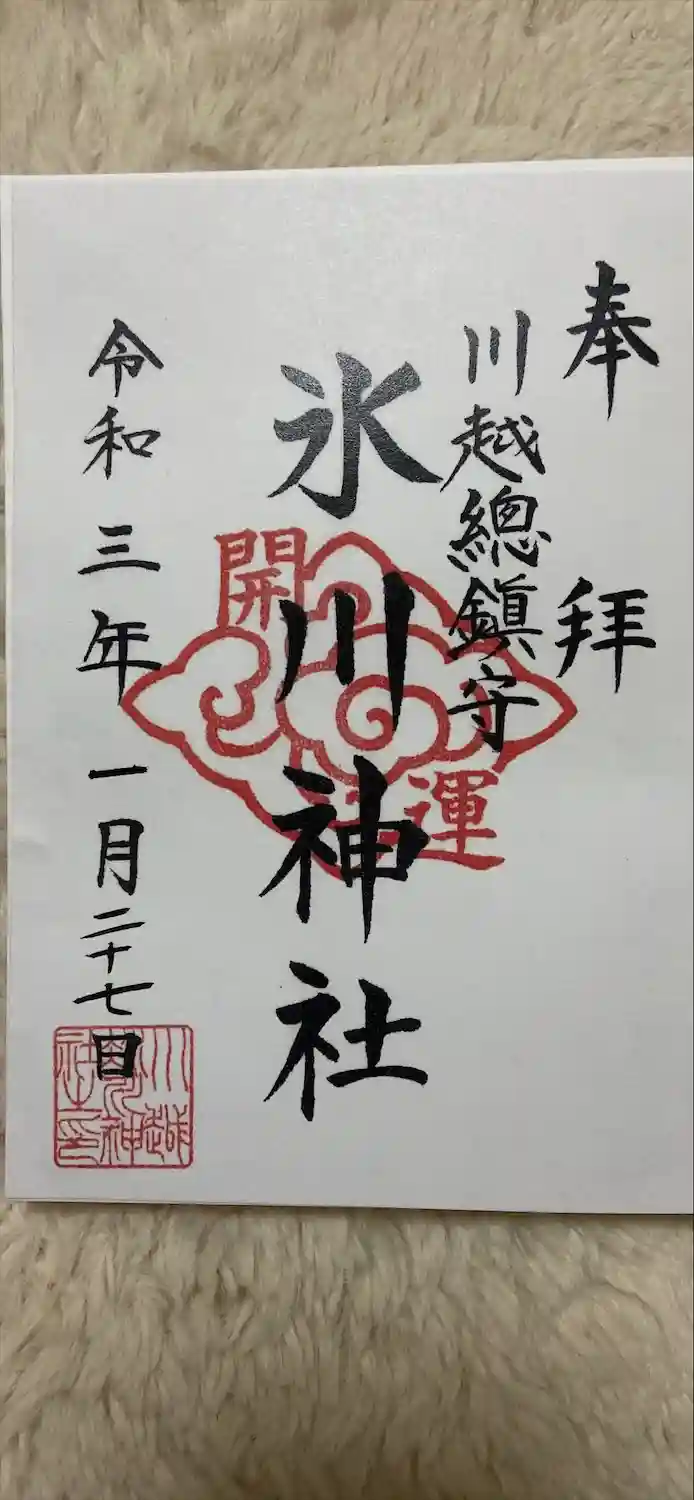 奉拝
川越總鎮守
氷川神社
開運
令和三年一月二十七日
川越
神
社印